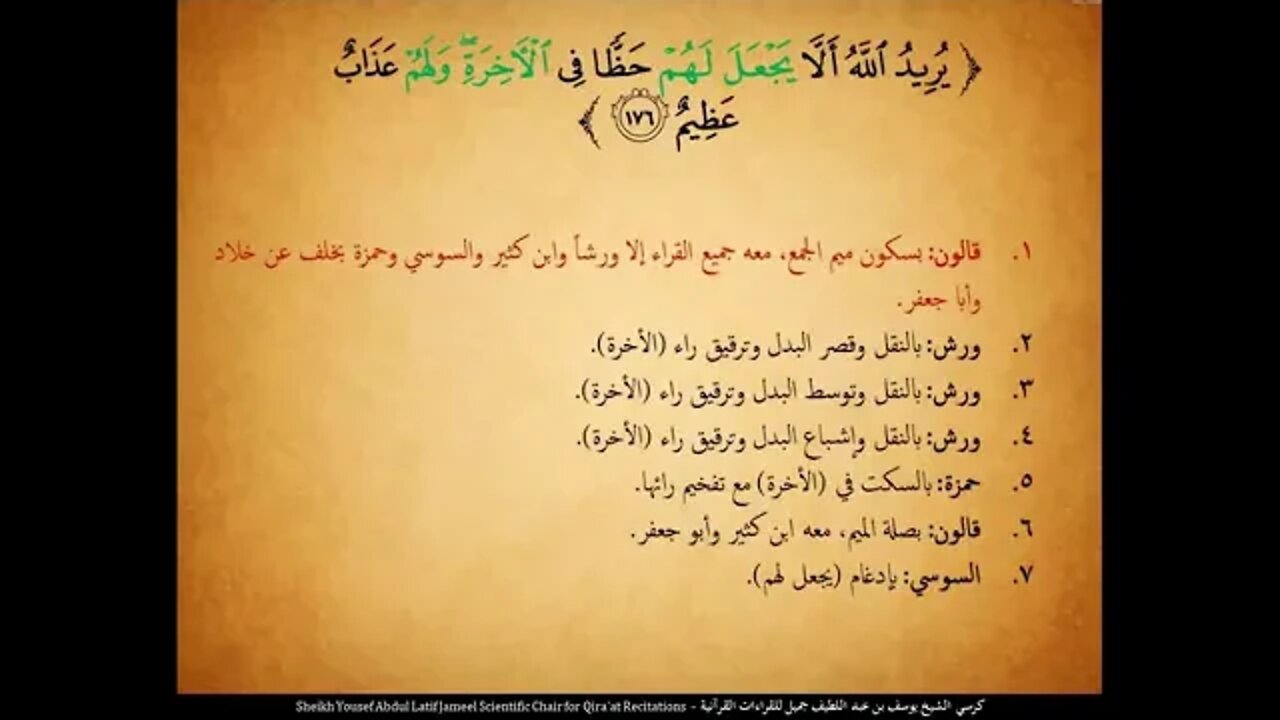 ﴿ يُرِيدُ ٱللَّهُ أَلَّا يَجۡعَلَ لَهُمۡ حَظّٗا فِي ٱلۡأٓخِرَةِۖ وَلَهُمۡ عَذَابٌ
عَظِيمٌ ١٧٦ ﴾
١. قالون: بسكون ميم الجمع، معه جميع القراء إلا ورشاً وابن كثير والسوسي وحمزة بخلف عن خلاد
وأبا جعفر.
٢. ورش: بالنقل وقصر البدل وترقيق راء (الأخرة).
٣. ورش: بالنقل وتوسط البدل وترقيق راء (الأخرة).
٤. ورش: بالنقل وإشباع البدل وترقيق راء (الأخرة).
٥. حمزة: بالسكت في (الأخرة) مع تفخيم رائها.
٦. قالون: بصلة الميم، معه ابن كثير وأبو جعفر.
٧. السوسي: بإدغام (يجعل لهم).
كرسي الشيخ يوسف بن عبد اللطيف جميل للقراءات القرآنية - Sheikh Yousef Abdul Latif Jameel Scientific Chair for Qira'at Recitations